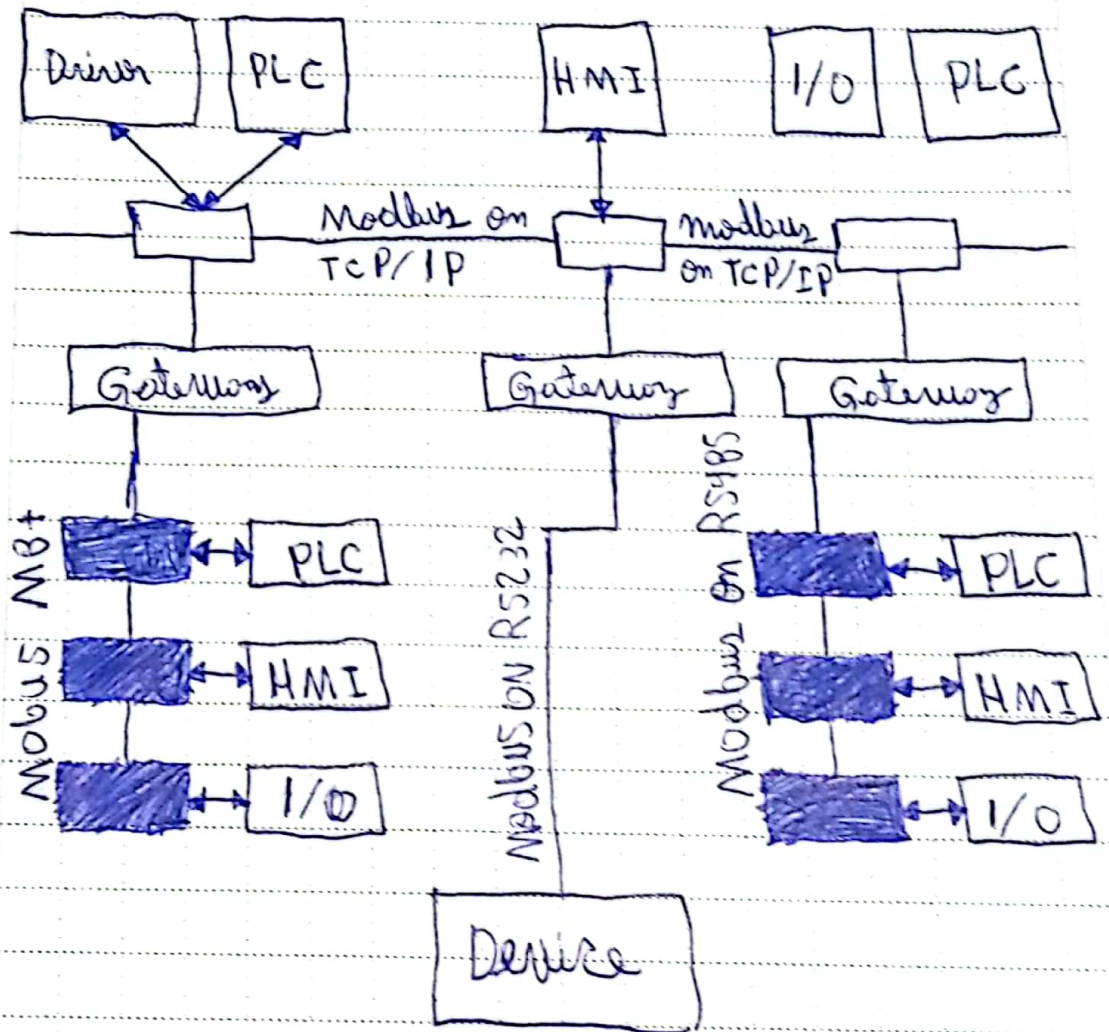 Driver
PLC
HMI
I/O
PLC
Modbus on
TCP/IP
modbus
on TCP/IP
Gateway
Gateway
Gateway
MobuS MB+
PLC
HMI
I/O
ModbuS ON RS232
Modbus on RS485
PLC
HMI
I/O
Device